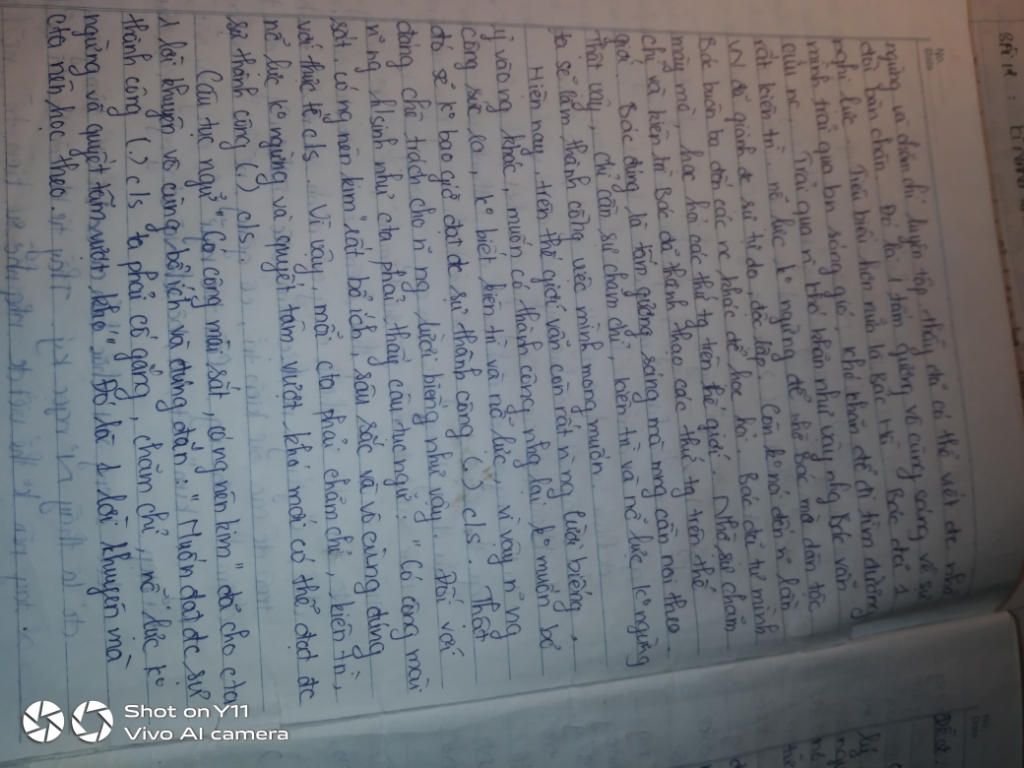 ngừng và chăm chỉ luyện tập thầy đã có thể viết đc nhờ
đôi bàn chân. Đó là 1 tấm gương vô cùng sáng về sự
nghị lực. Tiêu biểu hơn nữa là Bác Hồ. Bác đã
mình trải qua bn sóng gió, khó khăn để đi tìm đường
cứu nc. Trải qua n khó khăn như vậy nhg Bác vẫn
rất kiên trì, nỗ lực ko ngừng để
VN đã giành đc sự tự do, độc lập. Còn ko nói đến n lần
Bác buôn ba đến các nc khác để học hỏi. Bác đã tự mình
mày mò, học hỏi các thứ tg trên thế giới. Nhờ sự chăm
chỉ và kiên trì Bác đã thành thạo các thứ tg trên thế
giới. Bác đúng là tấm gương sáng mà mng cần noi theo.
Thật vậy, chỉ cần sự chăm chỉ, kiên trì và nỗ lực ko ngừng
ta sẽ làm thành công việc mình mong muốn.
Hiện nay, trên thế giới vẫn còn rất n ng lười biếng,
ỷ vào ng khác, muốn có thành công nhg lại ko muốn bỏ
công sức ra, ko biết kiên trì và nỗ lực, vì vậy n ng
đó sẽ ko bao giờ đạt đc sự thành công (.) c/s. Thật
đáng chê trách cho n ng lười biếng như vậy. Đối với
n ng hsinh như cta phải thấy câu tục ngữ: "Có công mài
sắt, có ng nên kim" rất bổ ích, sâu sắc và vô cùng đúng
với thực tế c/s. Vì vậy, mỗi cta phải chăm chỉ, kiên trì,
nỗ lực ko ngừng và quyết tâm vượt khó mới có thể đạt đc
sự thành công (.) c/s.
Câu tục ngữ "Có công mài sắt, có ng nên kim" đã cho cta
1 lời khuyên vô cùng bổ ích và đúng đắn: "Muốn đạt đc sự
thành công (.) c/s ta phải cố gắng, chăm chỉ, nỗ lực ko
ngừng và quyết tâm vượt khó". Đó là 1 lời khuyên mà
cta nên học theo.
Shot on Y11
Vivo AI camera